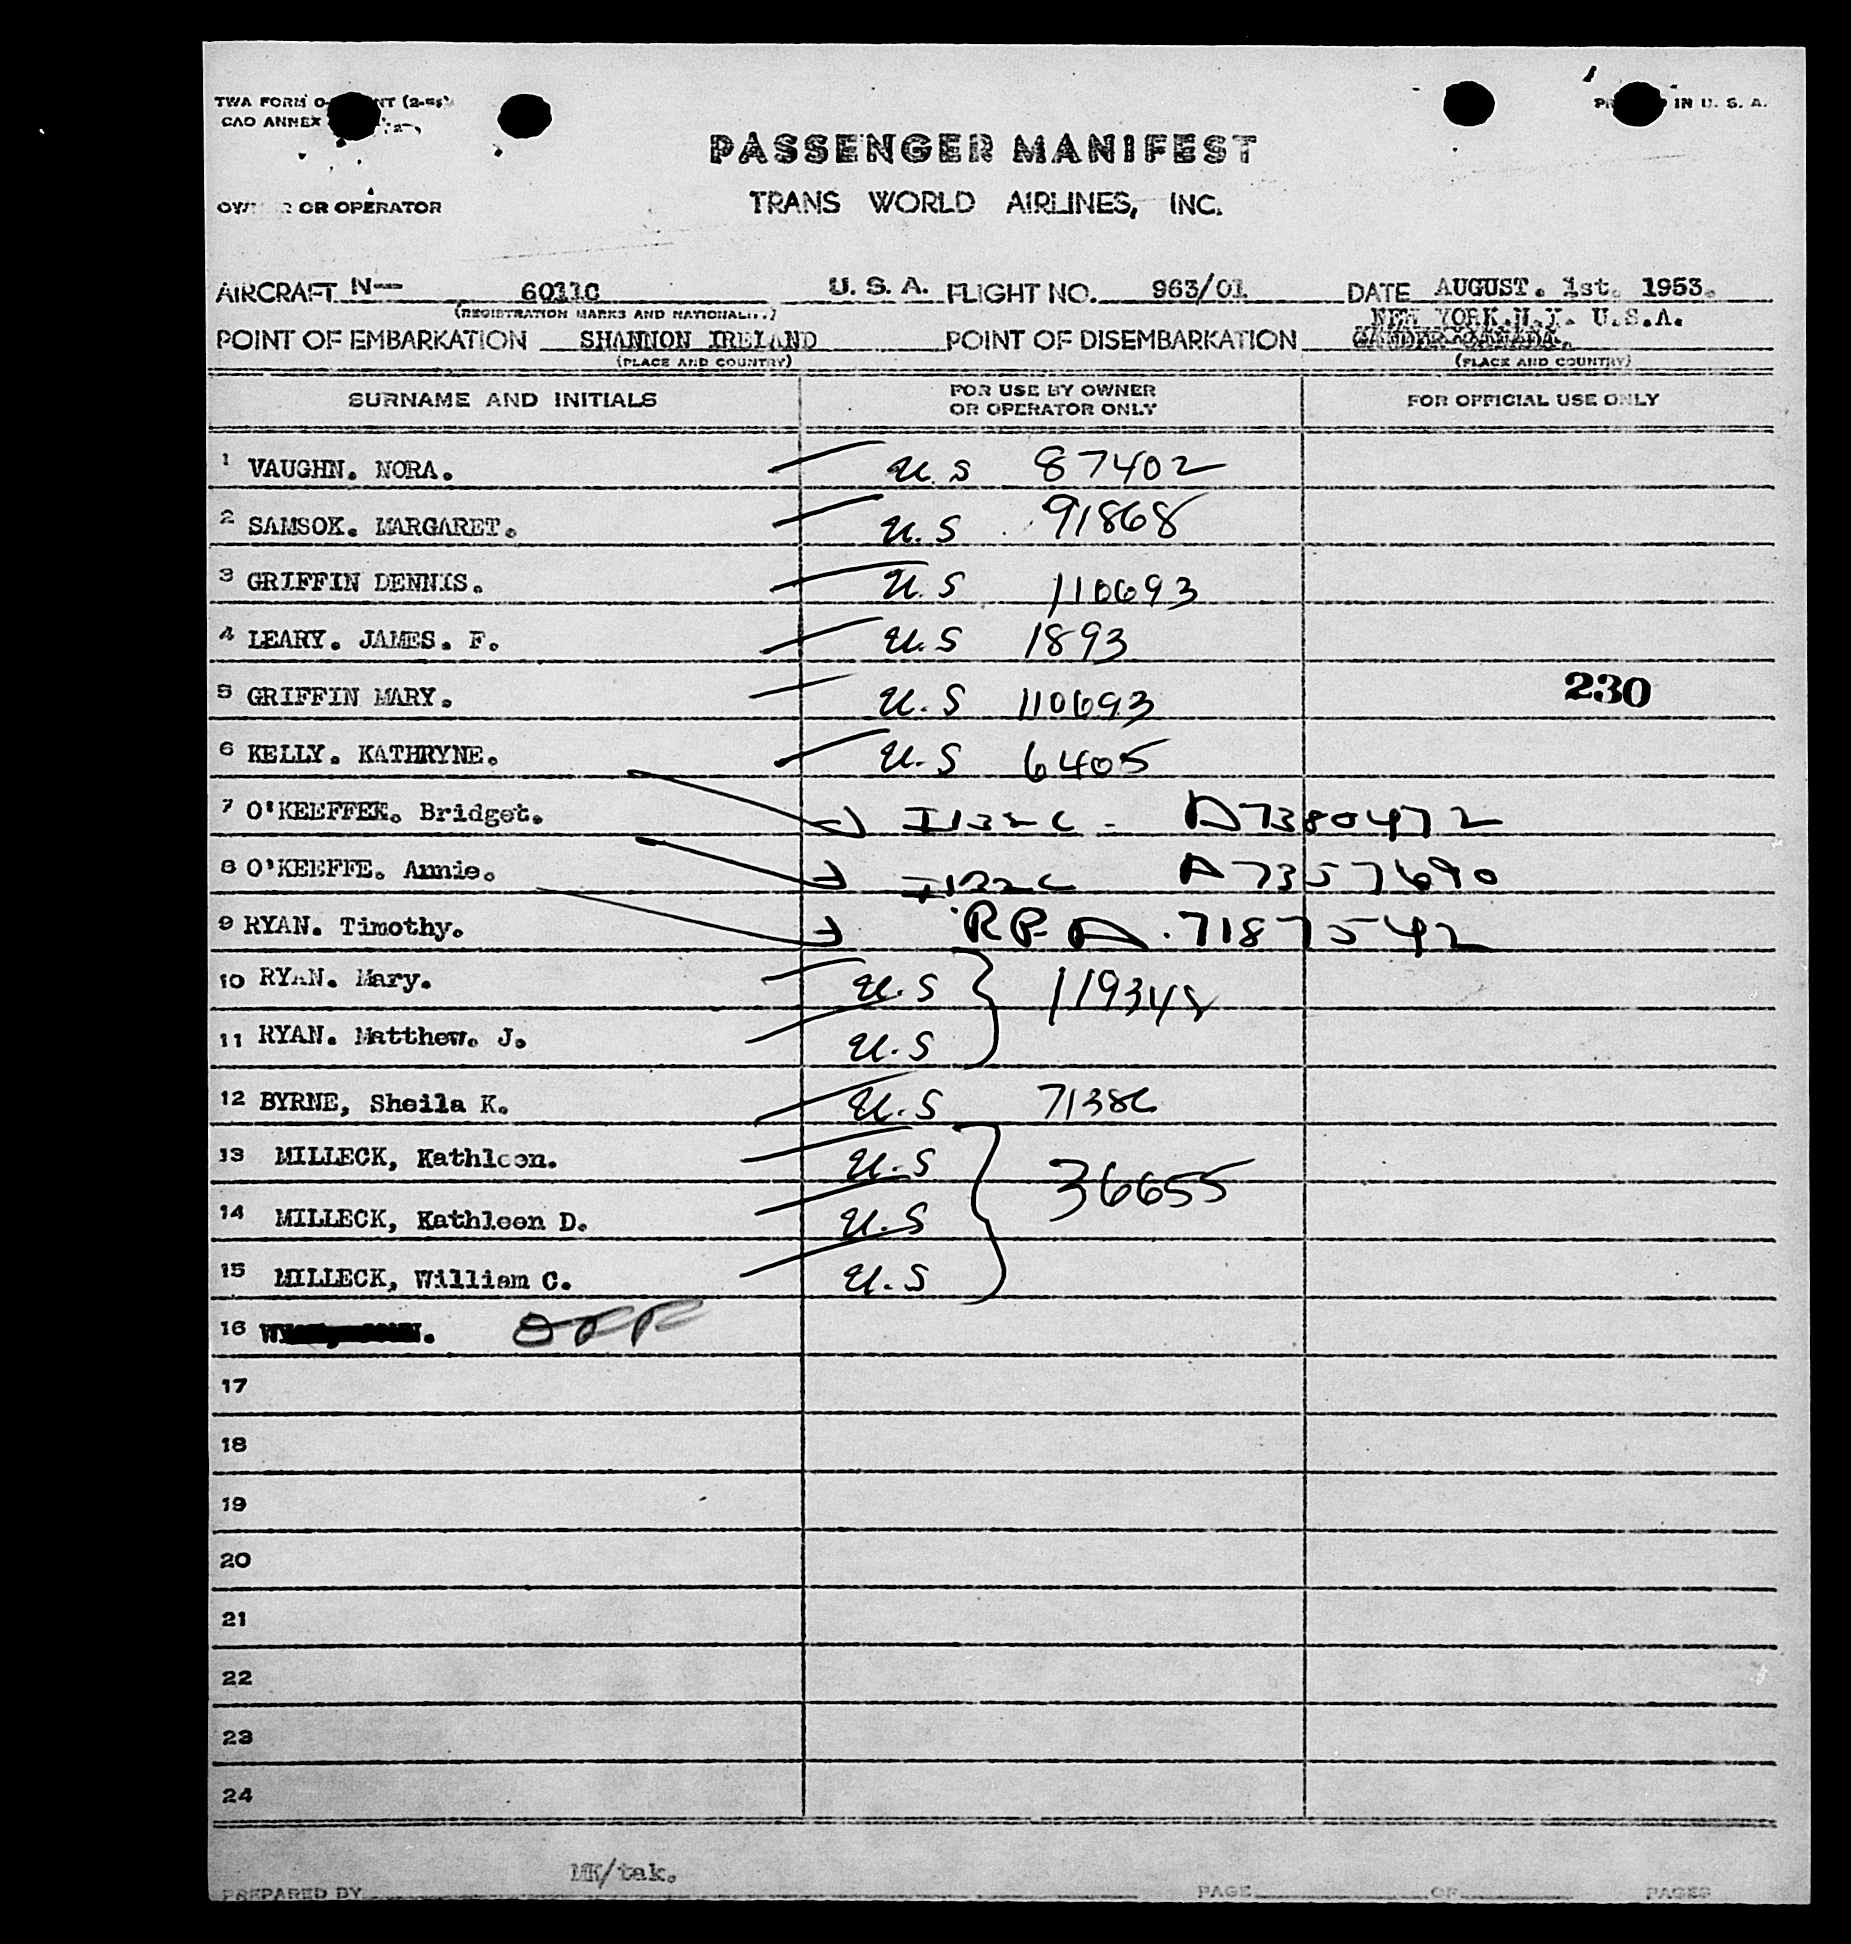 TWA FORM O- NT
PR IN U. S. A.
CAO ANNEX
PASSENGER MANIFEST
OR OPERATOR
TRANS WORLD AIRLINES, INC.
AIRCRAFT N— 6011C U. S. A. FLIGHT NO. 963/01 DATE AUGUST. 1st. 1953.
(REGISTRATION MARKS AND NATIONALITY)
NEW YORK.N.Y. U.S.A.
POINT OF EMBARKATION SHANNON IRELAND POINT OF DISEMBARKATION GANDER CANADA.
(PLACE AND COUNTRY) (PLACE AND COUNTRY)
SURNAME AND INITIALS
FOR USE BY OWNER
OR OPERATOR ONLY
FOR OFFICIAL USE ONLY
1 VAUGHN. NORA. U.S 87402
2 SAMSOK. MARGARET. U.S 91868
3 GRIFFIN DENNIS. U.S 110693
4 LEARY. JAMES. F. U.S 1893
5 GRIFFIN MARY. U.S 110693 230
6 KELLY. KATHRYNE. U.S 6405
7 O'KEEFFEE. Bridget. I132C - A7380472
8 O'KEEFFE. Annie. I132C A7357690
9 RYAN. Timothy. RP A.7187542
10 RYAN. Mary. U.S 119348
11 RYAN. Matthew. J. U.S
12 BYRNE, Sheila K. U.S 7138C
13 MILLECK, Kathleen. U.S 36655
14 MILLECK, Kathleen D. U.S
15 MILLECK, William C. U.S
16 OFF
17
18
19
20
21
22
23
24
MK/tak.
PREPARED BY PAGE OF PAGES